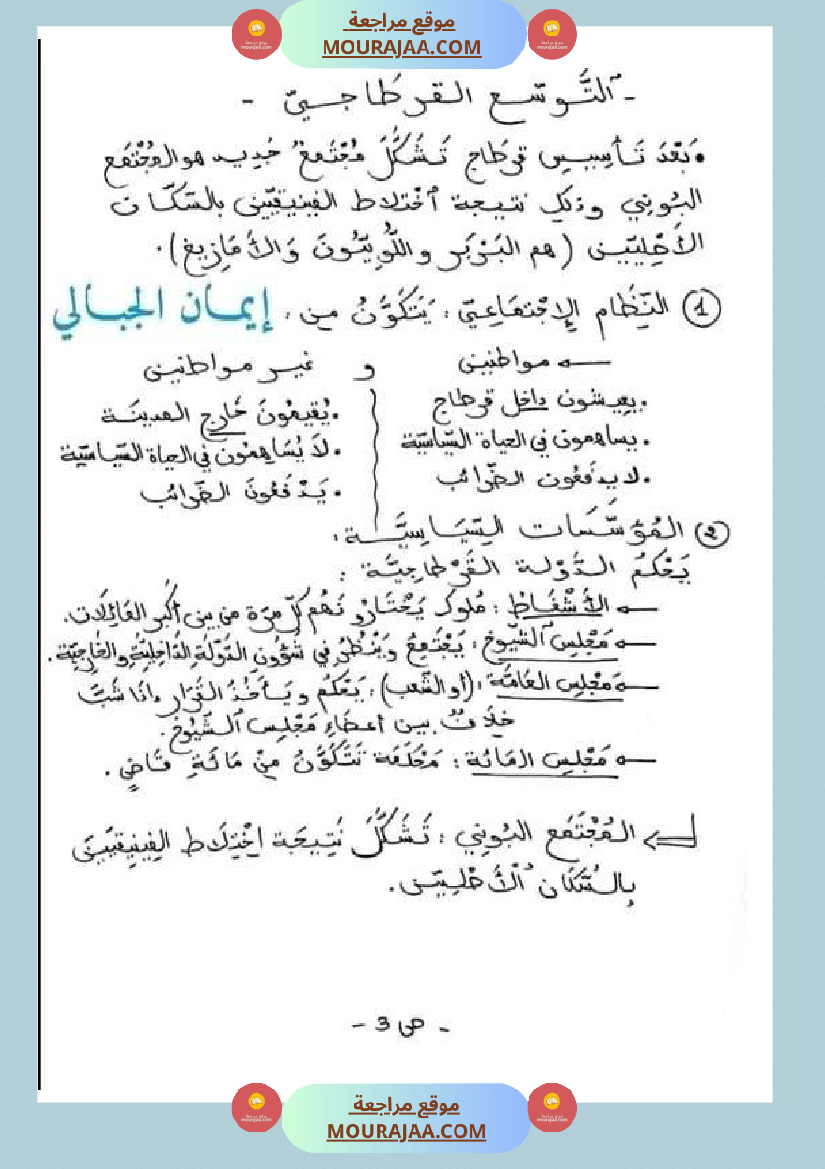 موقع مراجعة
MOURAJAA.COM
- التَّوسّع القرطاجيّ -
• بَعْدَ تَأسِيسِ قرطاج تَشَكَّلَ مُجْتَمَعٌ جَديد هو المُجْتَمَع
البُونِي وذلك نتيجة اخْتلاط الفينيقيّين بالسّكّان
الأَهْلِيّين (هم البَرْبَر واللُّوبِيُّونَ وَالأَمَازِيغ).
① النِّظَام الاِجْتِمَاعِيّ : يَتَكَوَّنُ من :
إيمان الجبالي
← مواطنين و غير مواطنين
• يعيشون داخل قرطاج
• يُقيمُونَ خَارِج المدينة
• يساهمون في الحياة السّياسيّة
• لاَ يُسَاهِمُون في الحياة السّياسيّة
• لا يدفَعُون الضّرائب
• يَدْفَعُونَ الضّرائب
② المُؤَسَّسَات السِّيَاسِيَّة :
يَحْكُمُ الدَّوْلة القَرْطاجِيَّة :
← الأَشْفَاط : مُلوك يَخْتَارُونَهُم كلّ مرّة من بين أكبر العَائِلات.
← مَجْلِس الشّيُوخ : يَجْتَمِعُ وَيَنْظُرُ في شُؤُون الدَّوْلَةِ الدَّاخِلِيَّةِ والخَارِجِيَّة.
← مَجْلِس العَامَّة : (أو الشَّعب) : يَحْكُم ويَأخُذُ القَرَار إذَا نَشَبَ
خِلاَفٌ بين أعضَاءِ مَجْلِس الشُّيُوخ.
← مَجْلِس المَائَة : مَحْكَمَة تَتَكَوَّنُ مِنْ مَائَةِ قَاضٍ.
⇐ المُجْتَمَع البُونِي : تَشَكَّلَ نَتِيجَة اِخْتِلاَط الفِينِيقِيِّينَ
بِالسُّكَّان الأَهْلِيِّين.
- ص 3 -
موقع مراجعة
MOURAJAA.COM